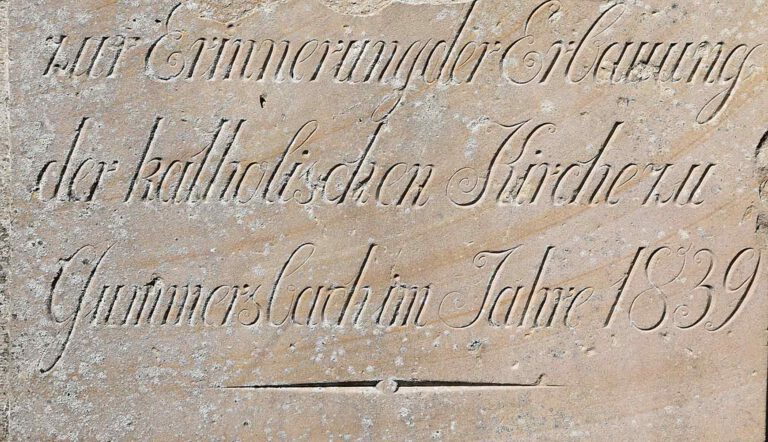 zur Erinnerung der Erbauung
der katholischen Kirche zu
Gummersbach im Jahre 1839